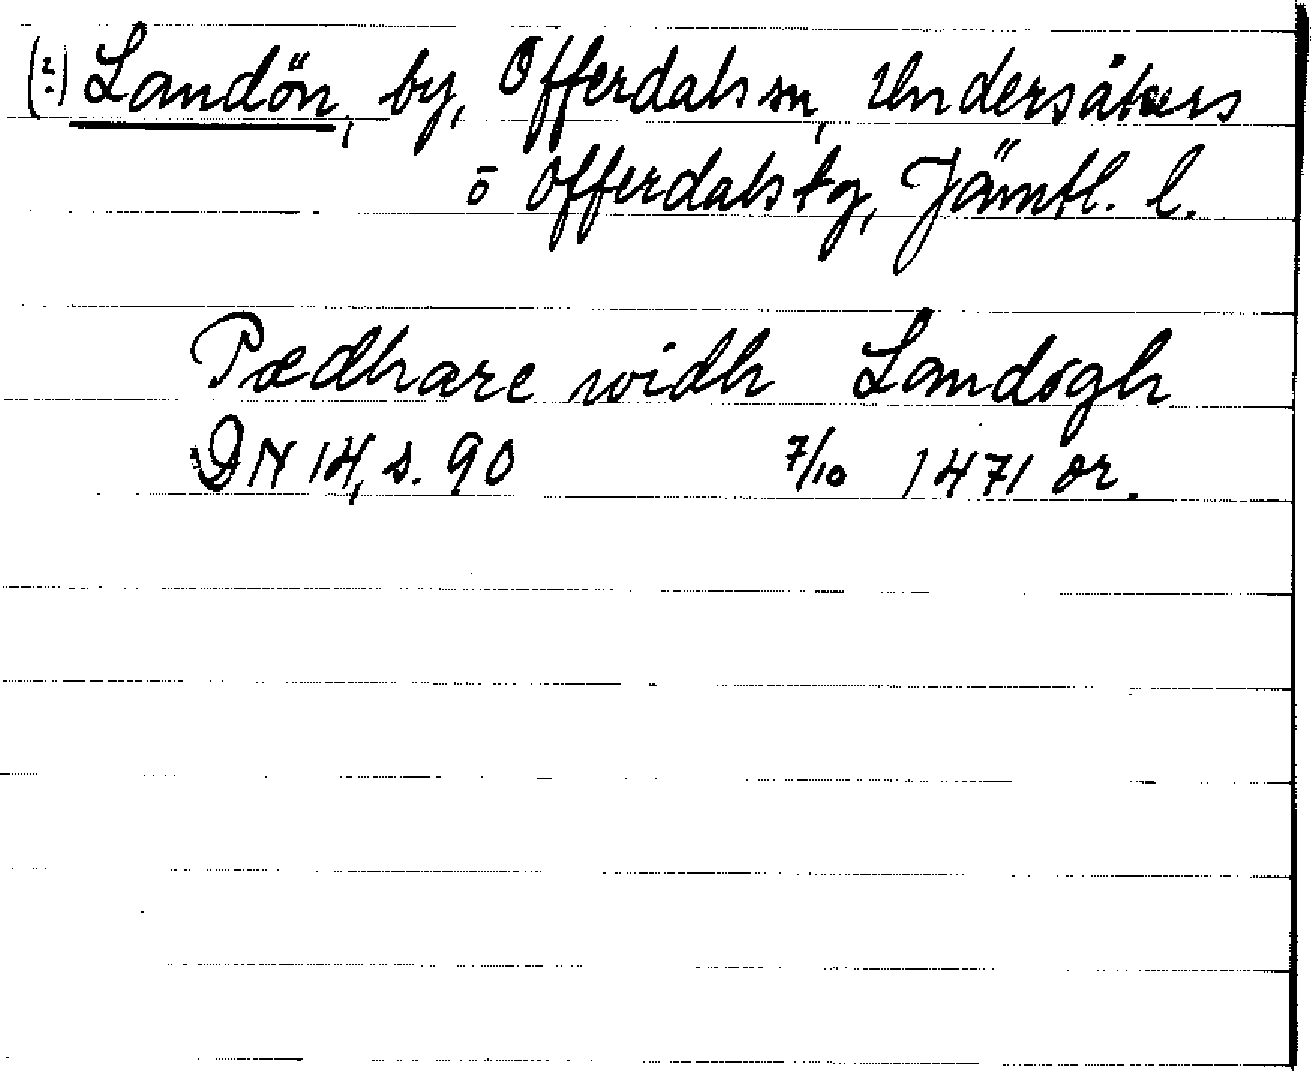 (2:) Landön, by, Offerdals sn, Undersåkers
o Offerdals tg, Jämtl. l.
Pædhare widh Landøgh
DN 14, s. 90 7/10 1471 or.